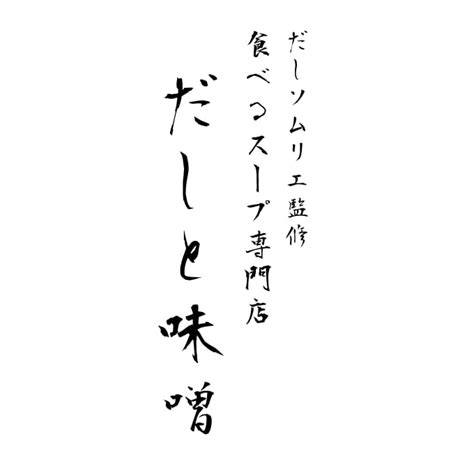 だしソムリエ監修
食べるスープ専門店
だしと味噌